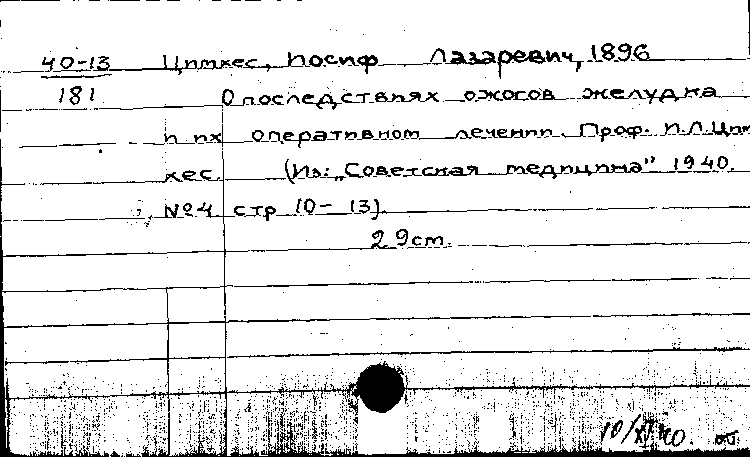 40-13 Цимхес, Иосиф Лазаревич, 1896
181 О последствиях ожогов желудка
и их оперативном лечении. Проф. И.Л.Цим
хес. (Из: „Советская медицина" 1940.
№4 стр 10-13).
29 cm.
10/XI 40.